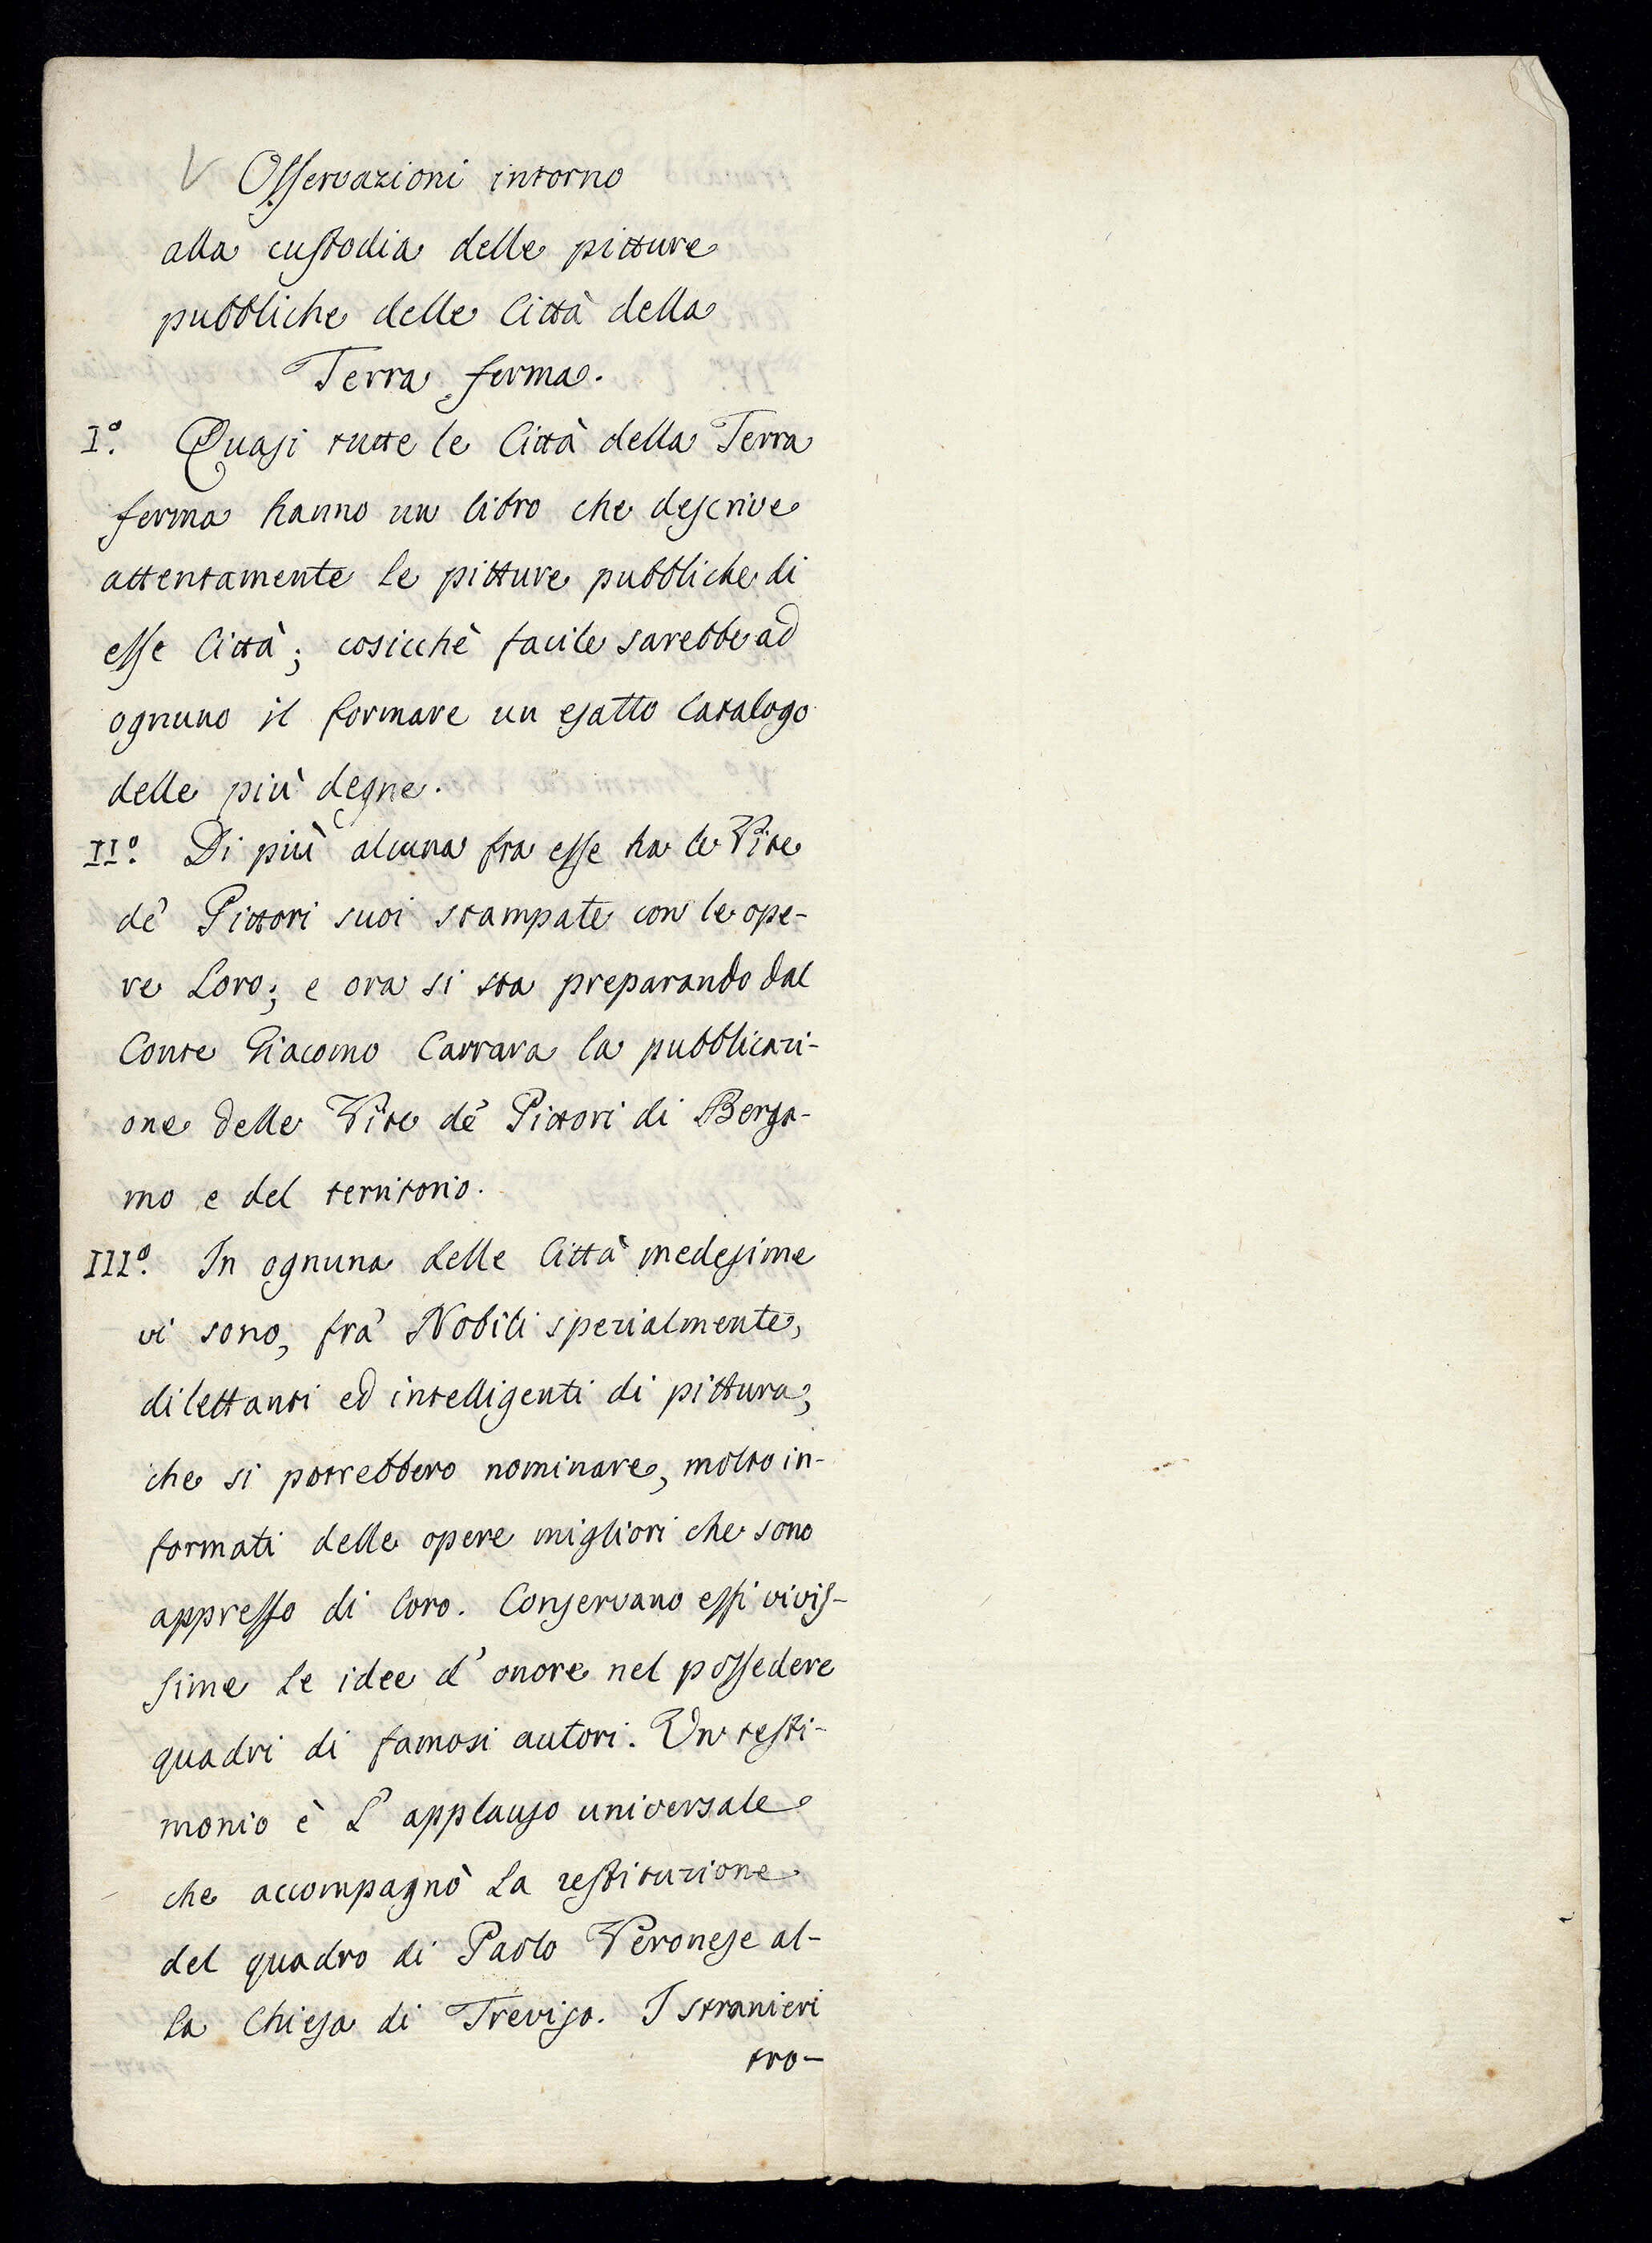 Osservazioni intorno
alla custodia delle pitture
pubbliche delle Città della
Terra ferma.
I.º Quasi tutte le Città della Terra
ferma hanno un libro che descrive
attentamente le pitture pubbliche di
esse Città; cosicchè facile sarebbe ad
ognuno il formare un esatto Catalogo
delle più degne.
II.º Di più alcuna fra esse ha le Vite
de' Pittori suoi stampate con le ope-
re Loro; e ora si sta preparando dal
Conte Giacomo Carrara la pubblicazi-
one delle Vite de' Pittori di Berga-
mo e del territorio.
III.º In ognuna delle Città medesime
vi sono, fra' Nobili spezialmente,
dilettanti ed intelligenti di pittura,
che si potrebbero nominare, molto in-
formati delle opere migliori che sono
appresso di loro. Conservano essi vivis-
sime le idee d'onore nel possedere
quadri di famosi autori. Un testi-
monio è L'applauso universale
che accompagnò La restituzione
del quadro di Paolo Veronese al-
la Chiesa di Treviso. I stranieri
tro-